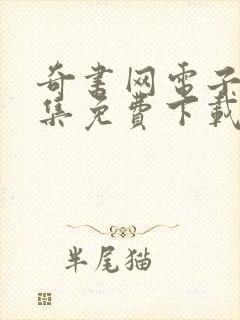 奇书网电子
集免费下载
半尾猫